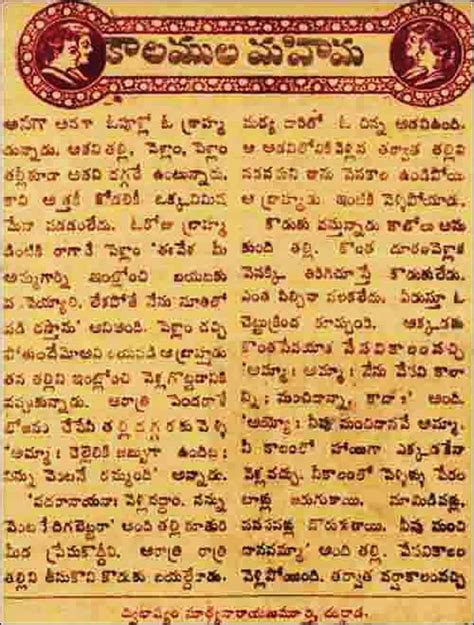 కాలముల మహిమ
అనగా అనగా ఓవూల్లో ఓ బ్రాహ్మ
డున్నాడు. అతని తల్లి, పెళ్లాం, పెళ్లాం
తల్లీకూడా అతని దగ్గరే ఉంటున్నారు.
కాని ఆ అత్తకీ కోడలికీ ఒక్కనిమిష
మేనా పడడంలేదు. ఓరోజు బ్రాహ్మ
డింటికి రాగానే పెళ్లాం 'ఈవేళ మీ
అమ్మగార్ని ఇంట్లోంచి బయటకు
పంపెయ్యాలి, లేకపోతే నేను నూతిలో
పడి చస్తాను' అనిఅంది. పెళ్లాం చచ్చి
పోతుందేమోఅని భయపడి ఆ బ్రాహ్మడు
తన తల్లిని ఇంట్లోంచి వెళ్లగొట్టడానికి
వప్పుకున్నాడు. ఆరాత్రి పెందరాళే
భోజనం చేసేసి తల్లిదగ్గరకు వెళ్లి
'అమ్మా! చెల్లెలికి జబ్బుగా ఉందిట!
నిన్ను వెంటనే రమ్మంది' అన్నాడు.
'పదనాయనా! వెళ్లివద్దాం. నన్ను
వెంటనేతీసికెళ్తావా' అంది తల్లి కూతురి
మీద ప్రేమకొద్దీని. ఆరాత్రి రాత్రి
తల్లిని తీసుకొని కొడుకు బయల్దేరాడు.
మధ్య దారిలో ఓ చిన్న అడవిఉంది.
ఆ అడవిలోనికివెళ్లిన తర్వాత తల్లిని
నడవమని తాను వెనకాల ఉండిపోయి
ఆ బ్రాహ్మడు ఇంటికి వెళ్లిపోయాడు.
కొడుకు వస్తున్నాడు కాబోలు అను
కుంది తల్లి. కొంత దూరంవెళ్లాక
వెనక్కి తిరిగిచూస్తే కొడుకులేడు.
ఎంత పిల్చినా పలకలేదు. ఏడుస్తూ ఓ
చెట్టుక్రింద కూర్చుంది. అక్కడకు
కొంతసేపయాక వేసవికాలంవచ్చి
'అమ్మా! అమ్మా! నేను వేసవి కాలా
న్ని! మంచిదాన్నా, కాదా!' అంది.
'అయ్యో! నీవు మంచిదానవే అమ్మా!
నీ కాలంలో హాయిగా ఎక్కడికేనా
వెళ్లవచ్చు. నీకాలంలో పెళ్లిళ్లు పేరం
టాళ్లు జరుగుతాయి. మామిడిపళ్లు
పనసపళ్లు దొరుకుతాయి. నీవు మంచి
దానవమ్మా' అంది తల్లి. వేసవికాలం
వెళ్లిపోయింది. తర్వాత వర్షాకాలంవచ్చి
సూర్యనారాయణమూర్తి,